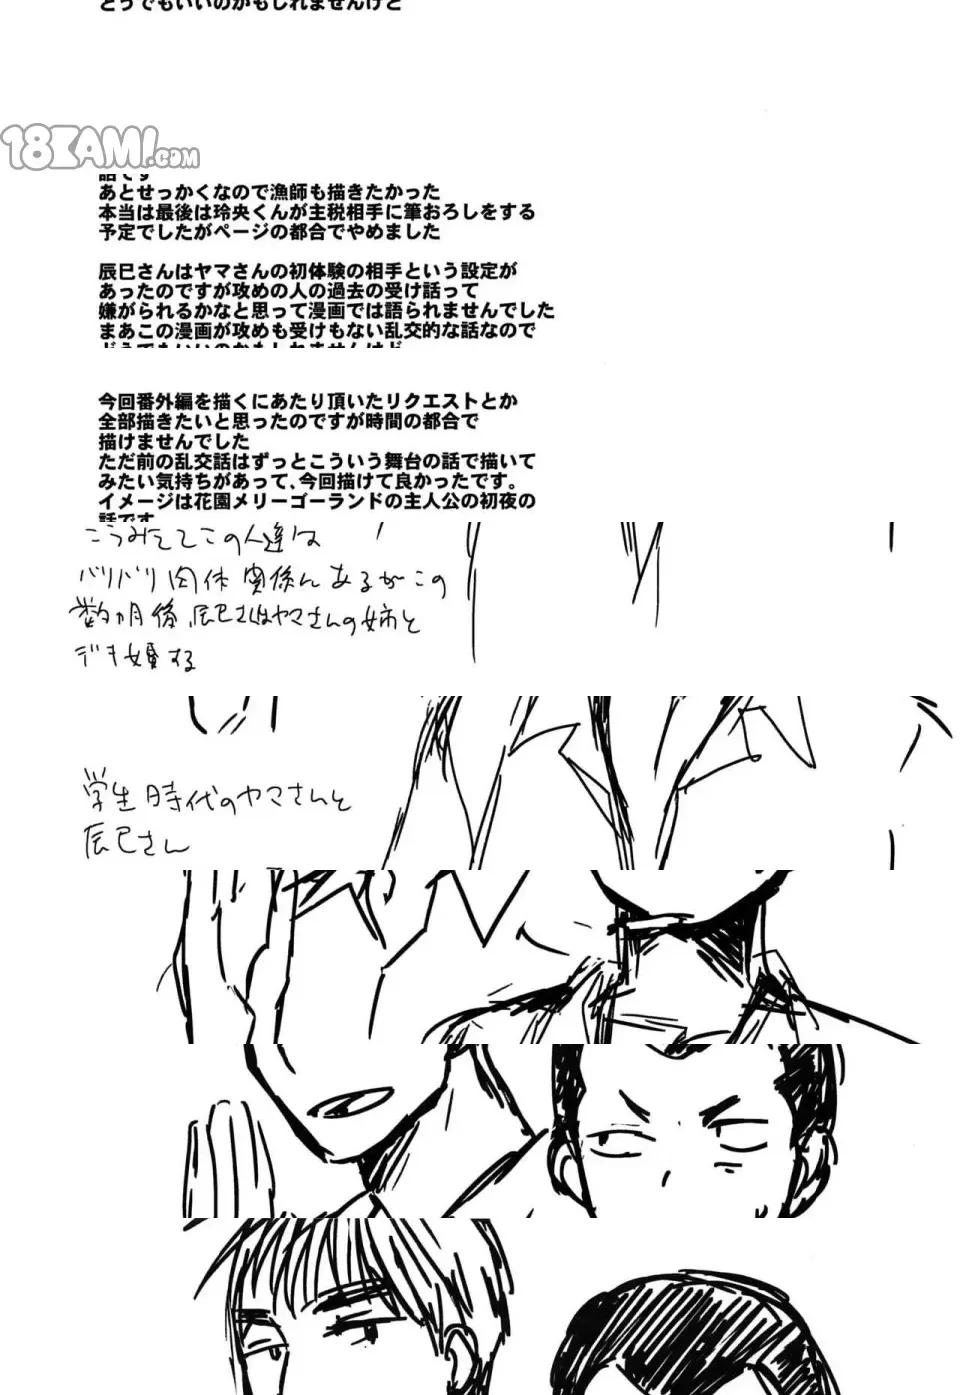 どうでもいいのかもしれませんけど
18KAMI.COM
話です
あとせっかくなので漁師も描きたかった
本当は最後は玲央くんが主税相手に筆おろしをする
予定でしたがページの都合でやめました
辰巳さんはヤマさんの初体験の相手という設定が
あったのですが攻めの人の過去の受け話って
嫌がられるかなと思って漫画では語られませんでした
まあこの漫画が攻めも受けもない乱交的な話なので
どうでもいいのかもしれませんけど
今回番外編を描くにあたり頂いたリクエストとか
全部描きたいと思ったのですが時間の都合で
描けませんでした
ただ前の乱交話はずっとこういう舞台の話で描いて
みたい気持ちがあって、今回描けて良かったです。
イメージは花園メリーゴーランドの主人公の初夜の
話です
こうみえてこの人達は
バリバリ肉体関係んあるがこの
数ヵ月後、辰巳さんはヤマさんの姉と
デキ婚する
学生時代のヤマさんと
辰巳さん